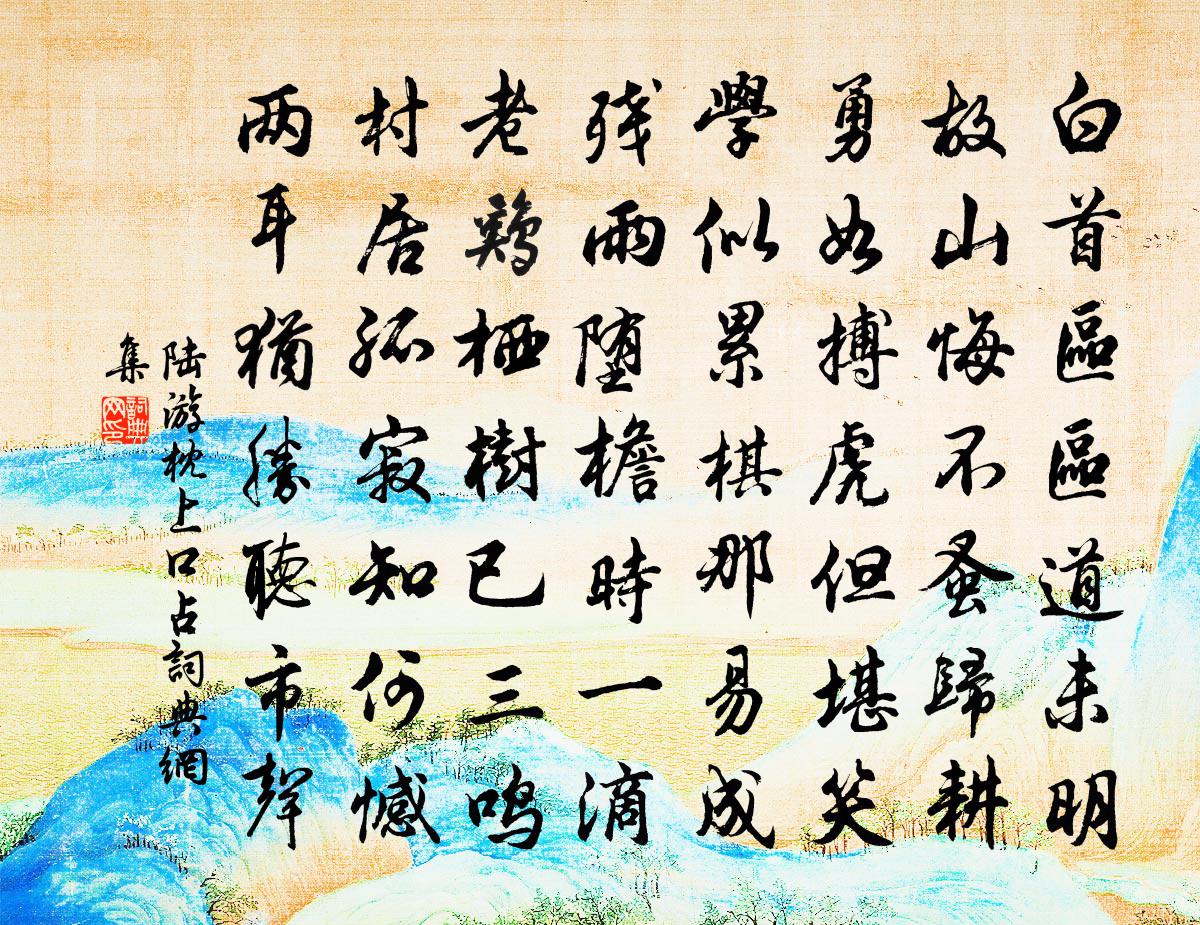 白首區區道未明
故山悔不蚤歸耕
勇如搏虎但堪笑
學似累棋那易成
残雨堕檐時一滴
老鷄栖樹已三鳴
村居孤寂知何憾
两耳猶勝聽市聲
陆游枕上口占詞典網
集
詞典
网印